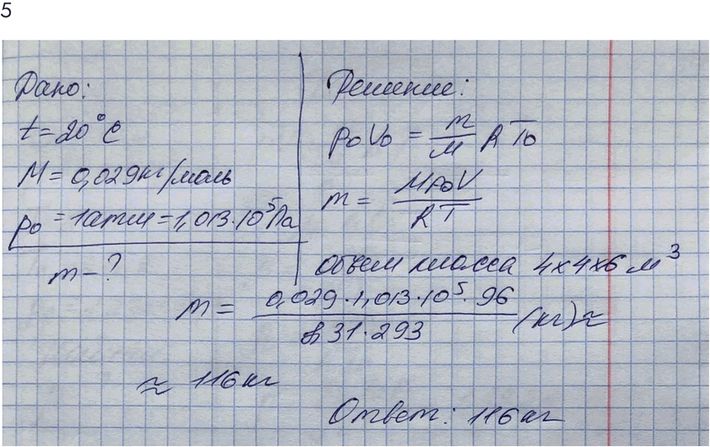 5
Дано:
t = 20°C
M = 0,029 кг/моль
p₀ = 1атм = 1,013·10⁵Па
m - ?
Решение:
p₀V₀ = m/M RT₀
m = Mp₀V/RT
объем класса 4x4x6 м³
m = 0,029·1,013·10⁵·96/8,31·293 (кг) ≈
≈ 116 кг
Ответ: 116 кг